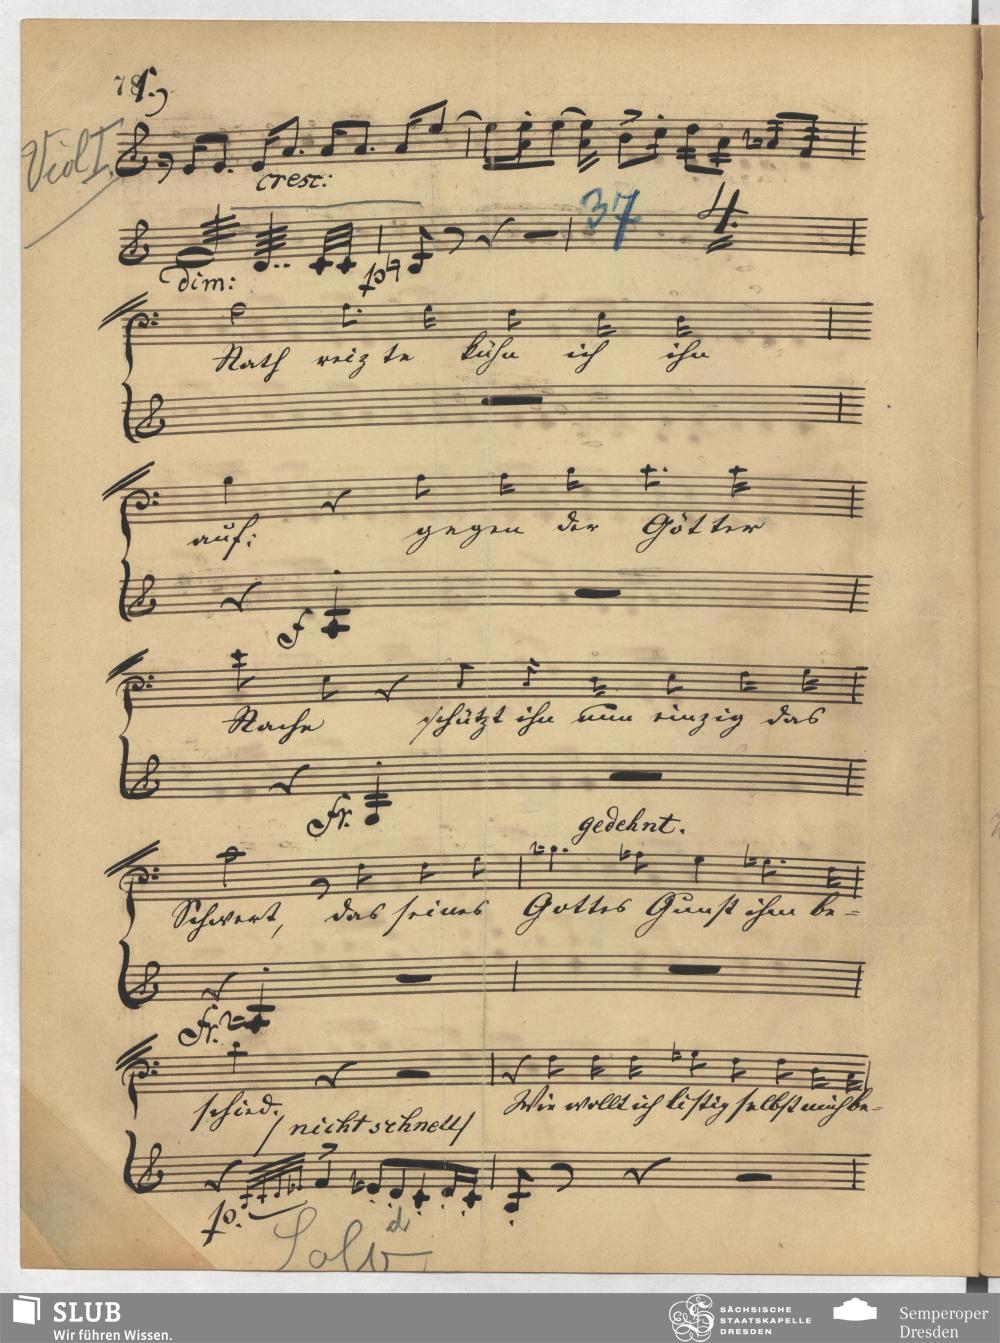 Viol I.
cresc:
dim:
p
37
4.
Rath reizte kühn ich ihn
auf:
gegen der Götter
f
Rache
schützt ihn nun einzig das
Fr.
gedehnt.
Schwert, das seines Gottes Gunst ihm be=
Fr.
schied.
Wie wollt ich listig selbst mich be=
/nicht schnell/
p.
Solo
SLUB
Wir führen Wissen.
SÄCHSISCHE
STAATSKAPELLE
DRESDEN
Semperoper
Dresden